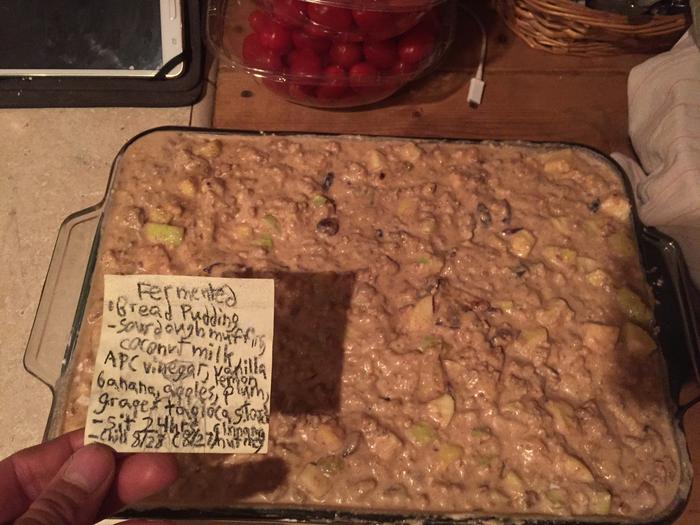 Fermented
Bread Pudding
- Sourdough muffins
coconut milk
APC vinegar, vanilla
lemon
banana, apples, plum,
grapes tapioca starch
- sit 24hrs, cinnamon
- chill 8/28 (8/27) nutmeg